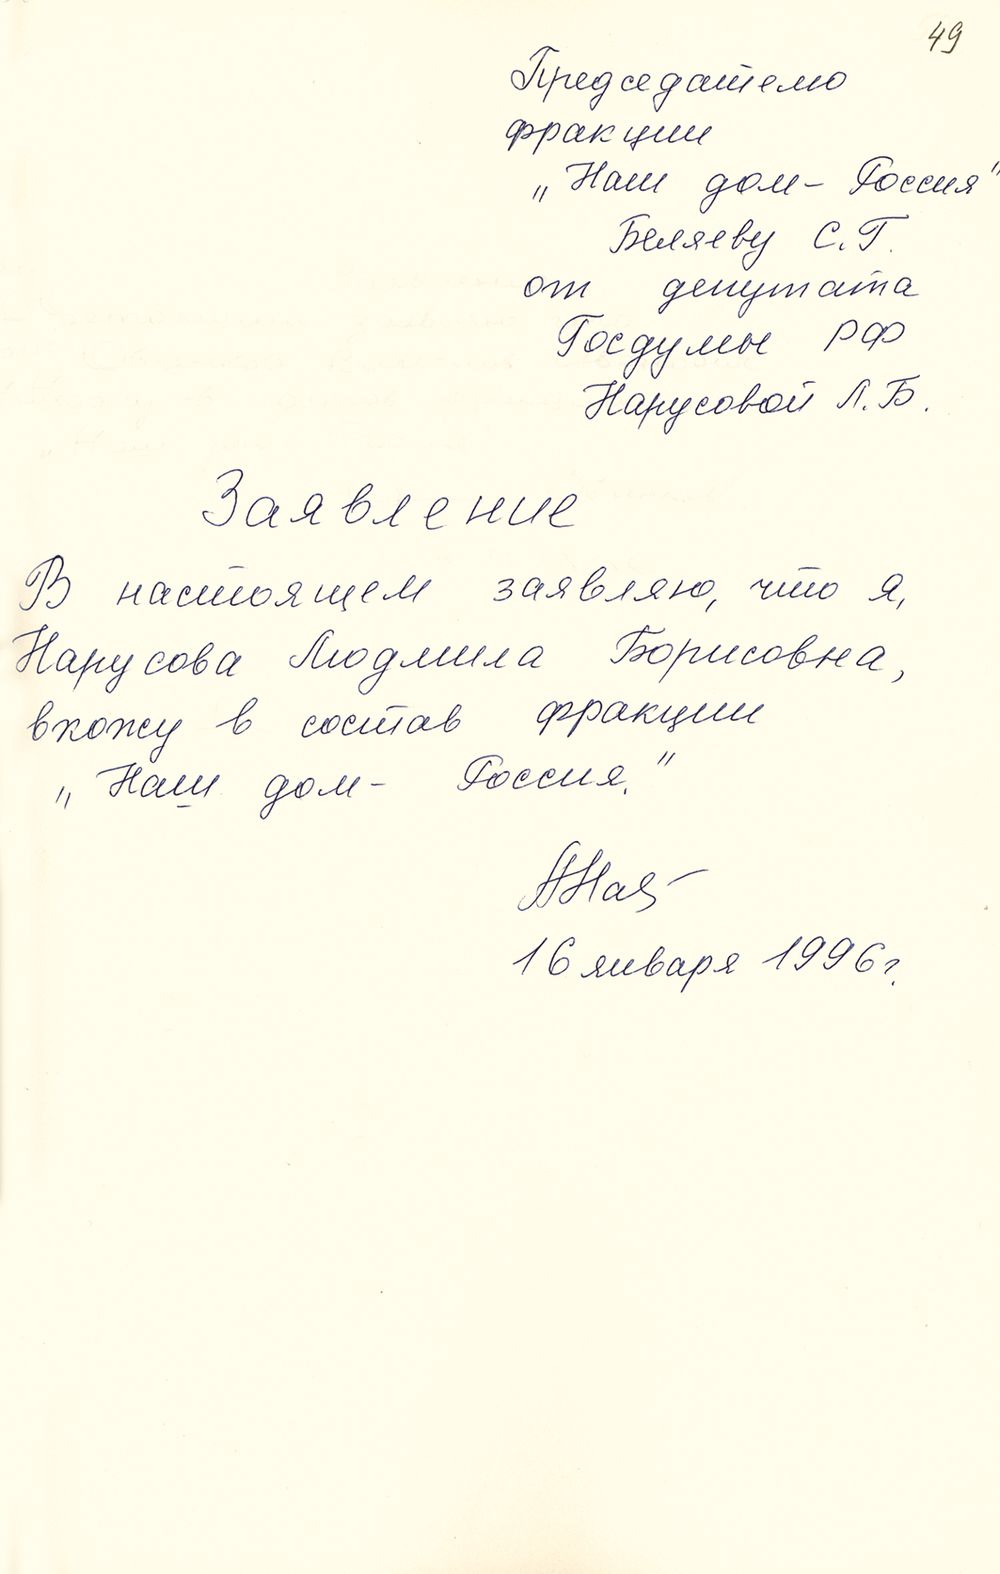 49
Председателю
фракции
„Наш дом – Россия"
Беляеву С.Г.
от депутата
Госдумы РФ
Нарусовой Л.Б.
Заявление
В настоящем заявляю, что я,
Нарусова Людмила Борисовна,
вхожу в состав фракции
„Наш дом – Россия."
16 января 1996 г.